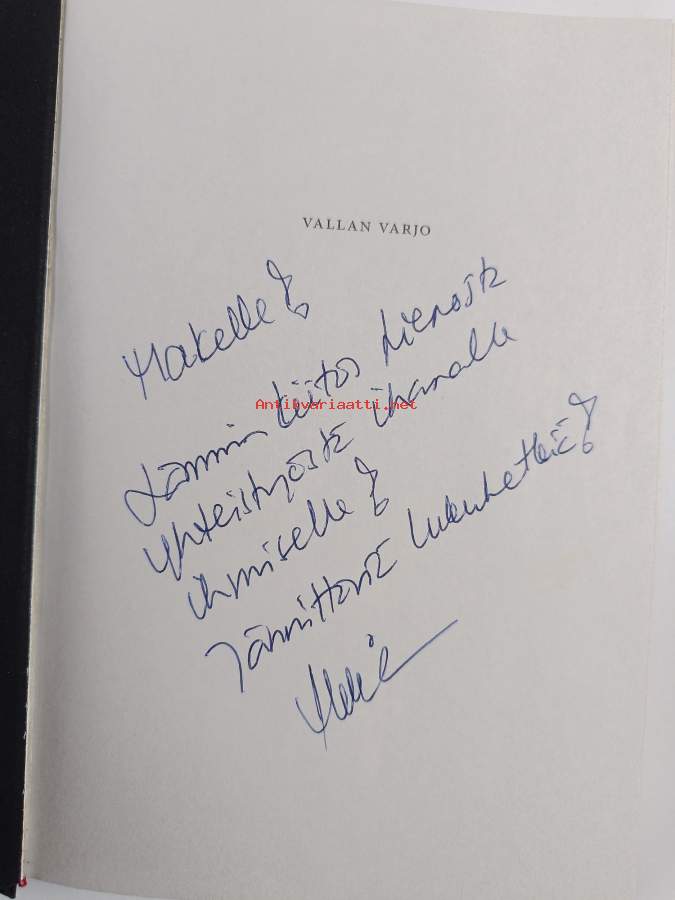 VALLAN VARJO
Makelle!
Lämmin kiitos hienosta
Antikvariaatti.net
yhteistyöstä ihanalle
ihmiselle!
Jännittäviä lukuhetkiä!